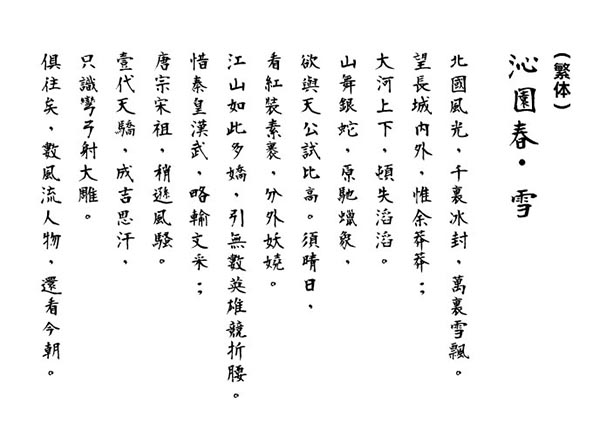 (繁体)
沁園春·雪
北國風光,千裏冰封,萬裏雪飄。
望長城內外,惟余莽莽;
大河上下,頓失滔滔。
山舞銀蛇,原馳蠟象、
欲與天公試比高。須晴日、
看紅裝素裹,分外妖嬈。
江山如此多嬌,引無數英雄競折腰。
惜秦皇漢武,略輸文采;
唐宗宋祖,稍遜風騷。
壹代天驕,成吉思汗、
只識彎弓射大雕。
俱往矣,數風流人物、還看今朝。